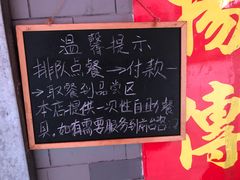 温馨提示
排队点餐→付款→
→取餐到品尝区
本店提供一次性自助餐
具，如有需要服务到前台咨
傳